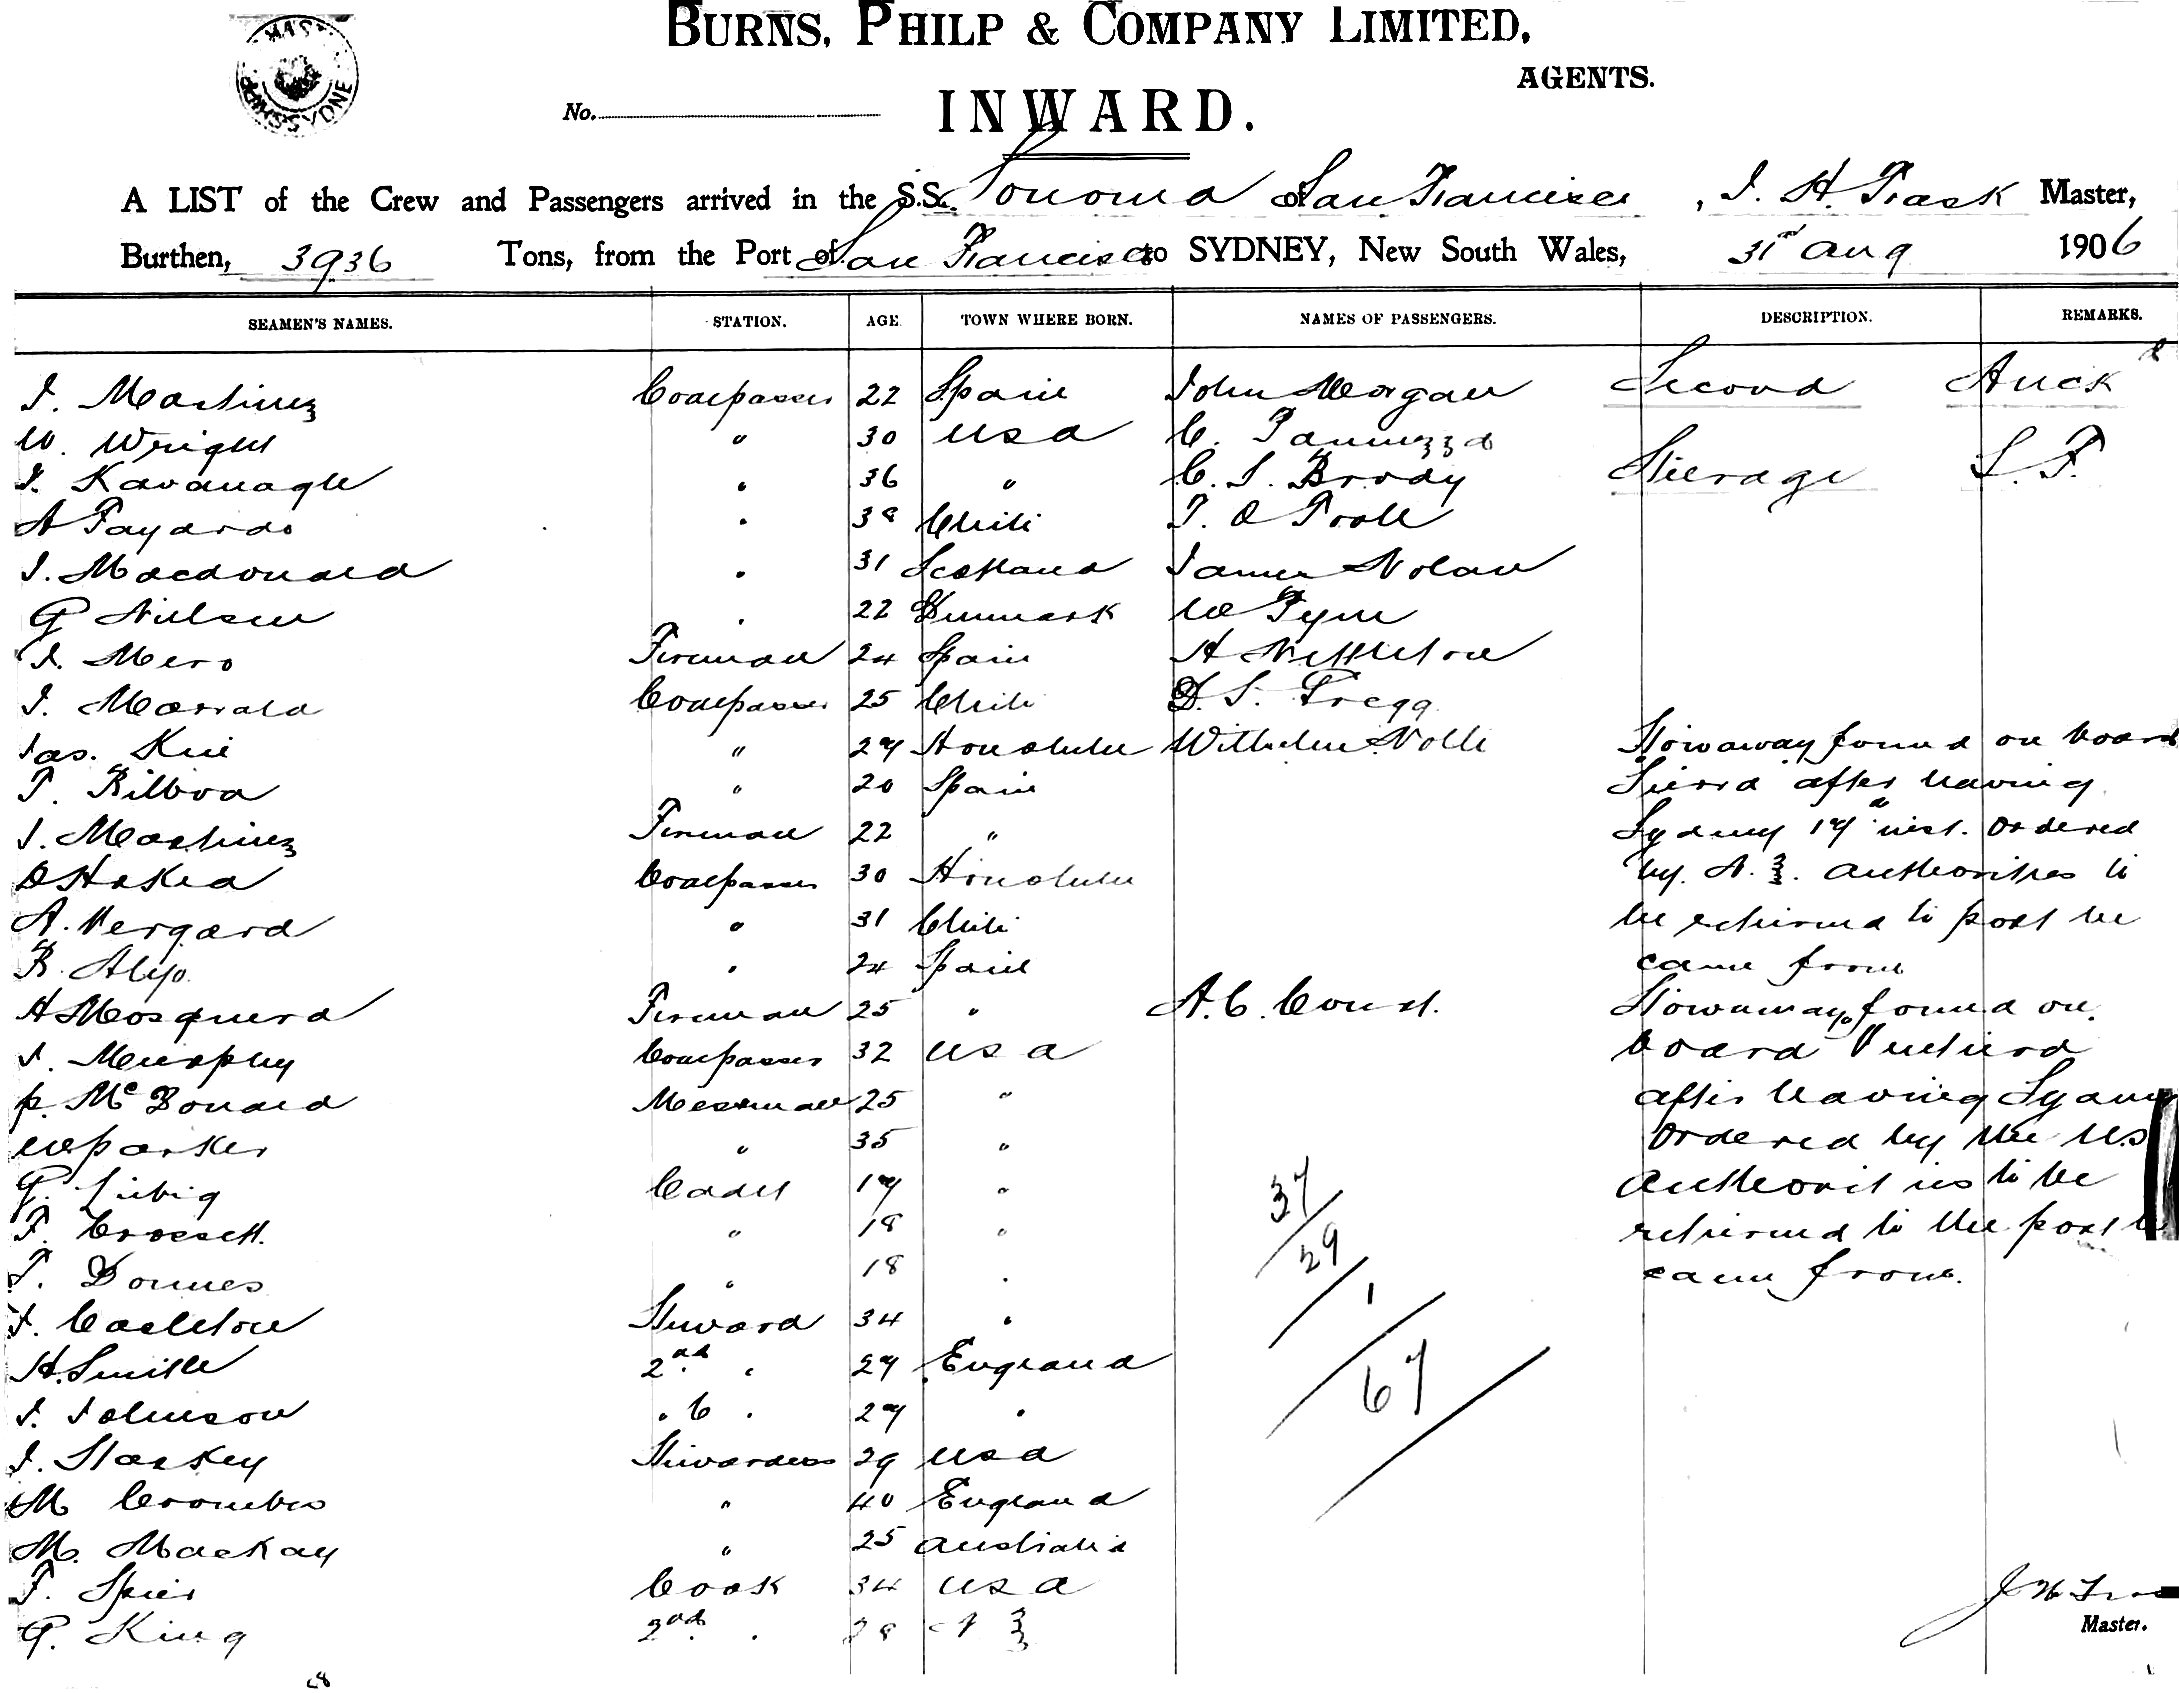 BURNS, PHILP & COMPANY LIMITED,
AGENTS.
No.
INWARD.
A LIST of the Crew and Passengers arrived in the S.S. Sonoma of San Francisco, J. H. Trask Master,
Burthen, 3936 Tons, from the Port of San Francisco to SYDNEY, New South Wales, 31st Aug 1906
SEAMEN'S NAMES. STATION. AGE TOWN WHERE BORN. NAMES OF PASSENGERS. DESCRIPTION. REMARKS.
J. Martinez Coalpasser 22 Spain John Morgan Second Auck
W. Wright " 30 USA C.
J. Kavanagh " 36 " C. S. Brody Steerage S.F.
A Fayardo " 38 Chili T. O Toole
J. Macdonald " 31 Scotland James Nolan
G Nielsen " 22 Denmark W Pym
J. Mero Fireman 24 Spain A Nettleton
J. Coalpasser 25 Chili D. S. Gregg
Jas. Kui " 27 Honolulu Wilhelm Nolle Stowaway found on board
P. Bilboa " 20 Spain Sierra after leaving
J. Martinez Fireman 22 " Sydney 17th inst. Ordered
Coalpasser 30 Honolulu by N.Z. authorities to
A. Vergara " 31 Chili be returned to port he
B. Alejo " 24 Spain came from
A Mosquera Fireman 25 " A. C. Stowaway found on
J. Murphy Coalpasser 32 USA board Ventura
P. McDonald Messman 25 " after leaving Sydney
W Parker " 35 " Ordered by the U.S
G. Liebig Cadet 17 " authorities to be
F. Crossett " 18 " returned to the port he
T. Downes " 18 " came from.
J. Carleton Steward 34 "
H. Smith 2nd " 27 England
J. Johnson " C " 27 "
J. Starkey Stewardess 29 USA
M Crombie " 40 England
M. Mackay " 25 Australia
F. Spier Cook 34 USA
G. King 2nd " 28 NZ
37
29
1
67
Master.